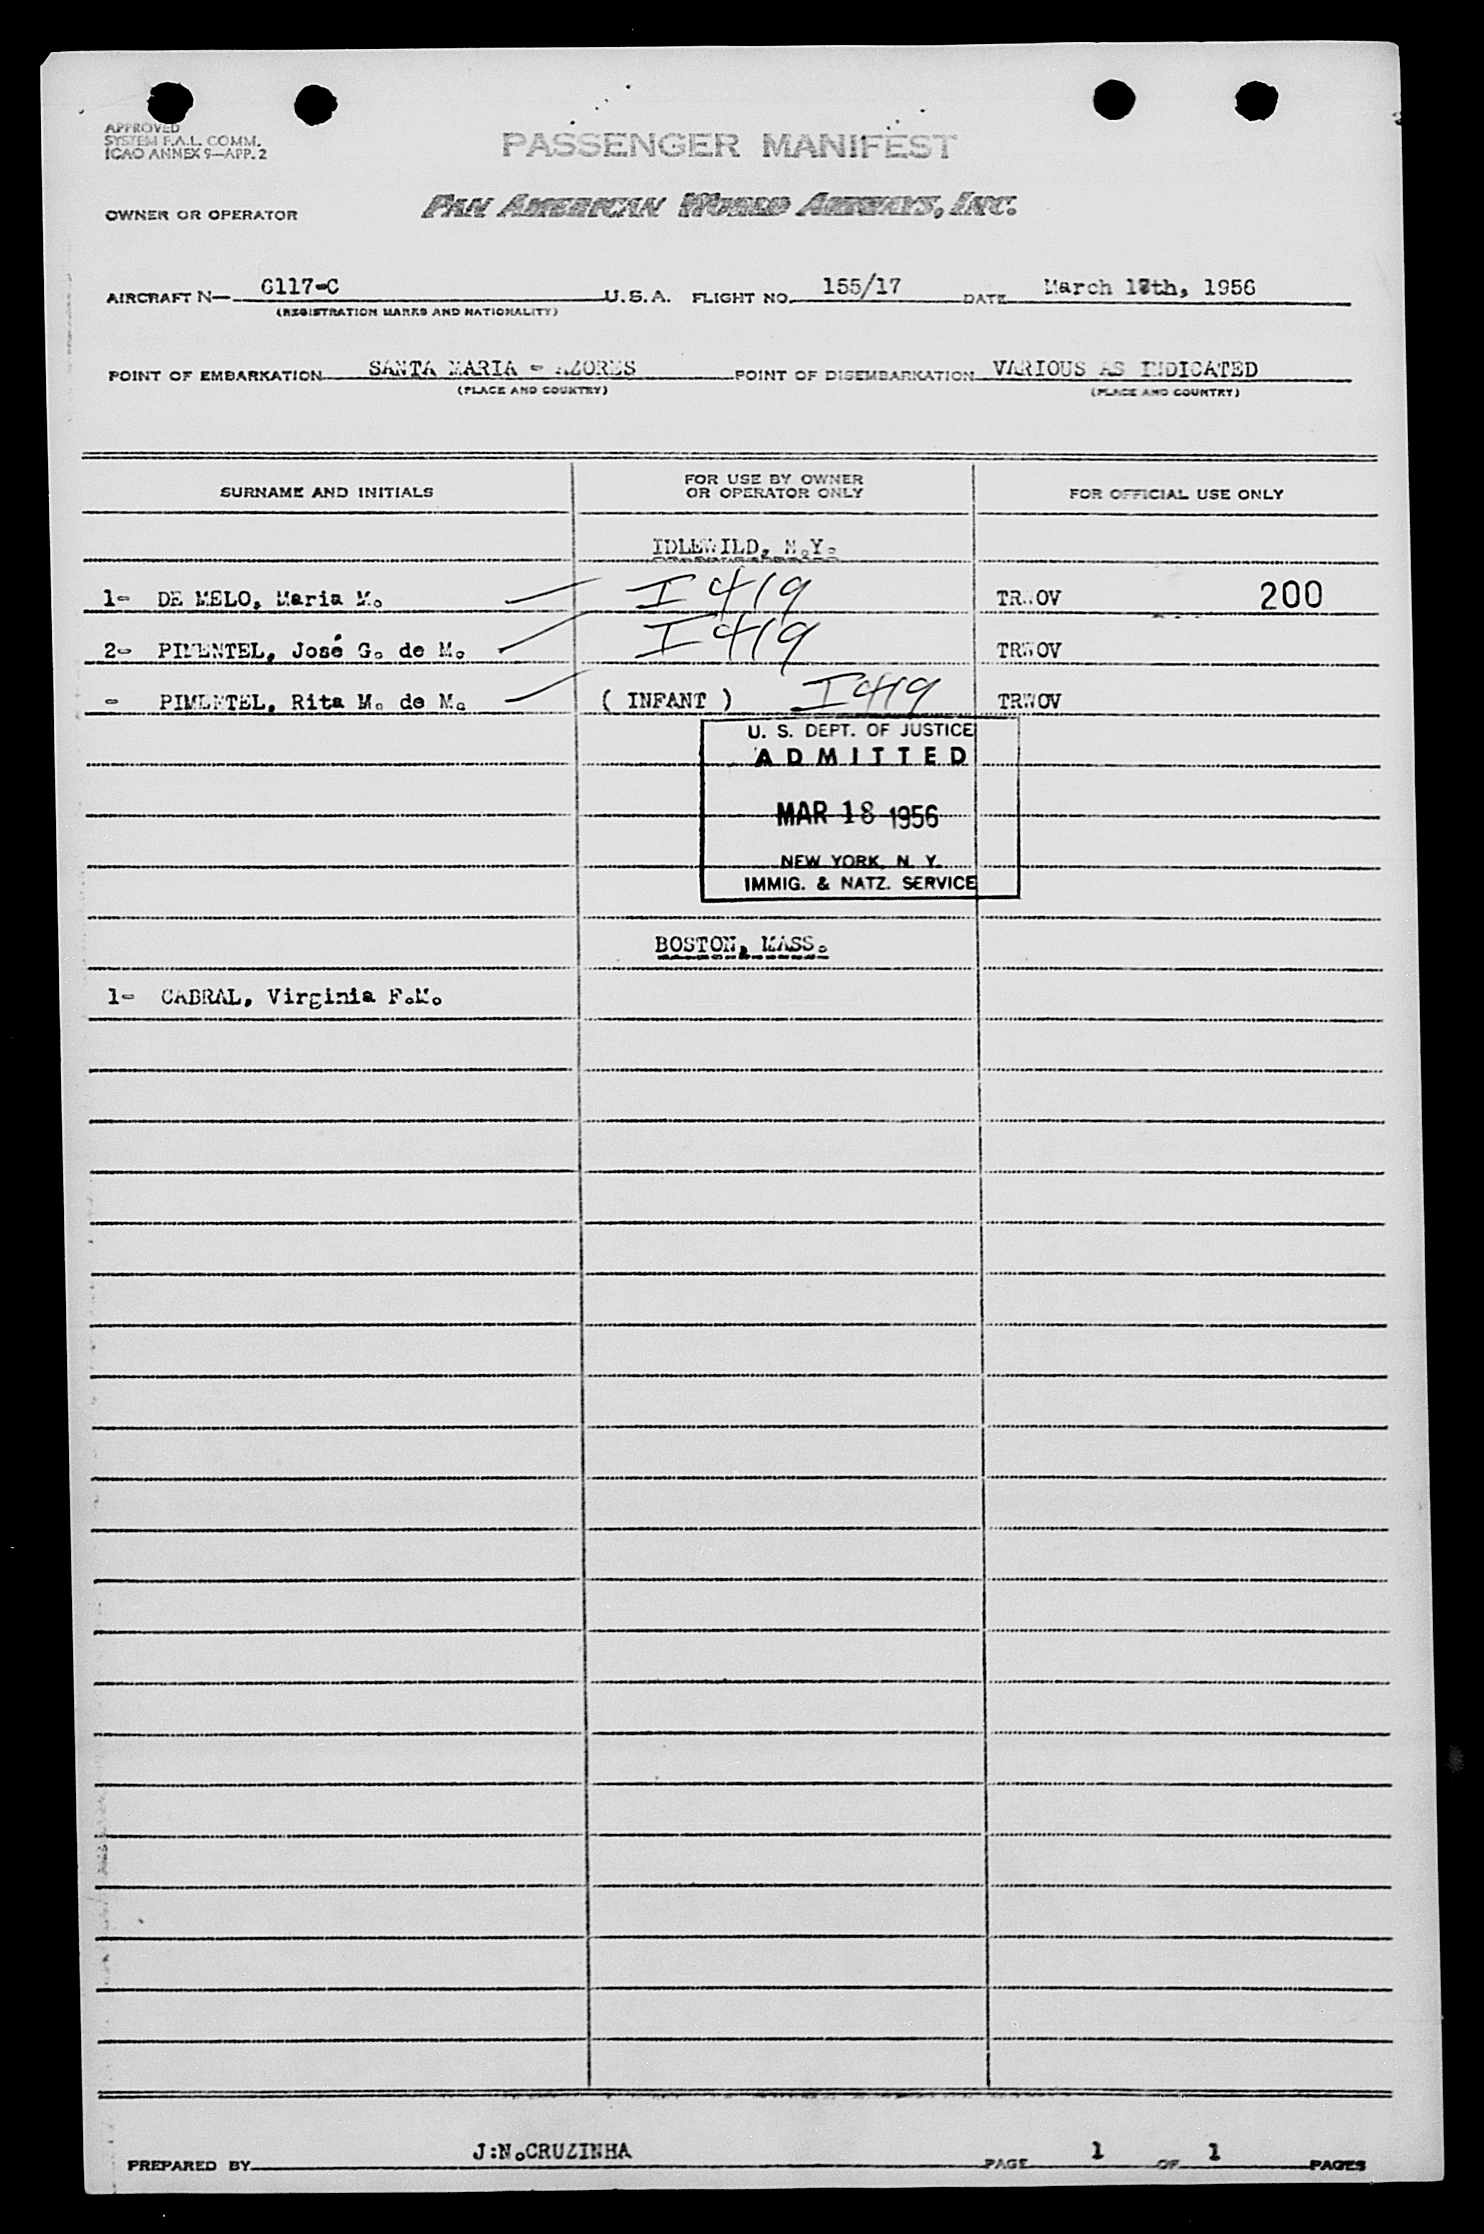 APPROVED
SYSTEM F.A.L. COMM.
ICAO ANNEX 9—APP. 2
PASSENGER MANIFEST
OWNER OR OPERATOR PAN AMERICAN WORLD AIRWAYS, INC.
AIRCRAFT N— 6117-C U.S.A. FLIGHT NO. 155/17 DATE March 18th, 1956
(REGISTRATION MARKS AND NATIONALITY)
POINT OF EMBARKATION SANTA MARIA - AZORES POINT OF DISEMBARKATION VARIOUS AS INDICATED
(PLACE AND COUNTRY) (PLACE AND COUNTRY)
SURNAME AND INITIALS FOR USE BY OWNER OR OPERATOR ONLY FOR OFFICIAL USE ONLY
IDLEWILD, N.Y.
1- DE MELO, Maria M. I 419 TRWOV 200
2- PIMENTEL, José G. de M. I 419 TRWOV
- PIMENTEL, Rita M. de M. ( INFANT ) I 419 TRWOV
U. S. DEPT. OF JUSTICE
ADMITTED
MAR 18 1956
NEW YORK, N. Y.
IMMIG. & NATZ. SERVICE
BOSTON, MASS.
1- CABRAL, Virginia F.M.
PREPARED BY J:N.CRUZINHA PAGE 1 OF 1 PAGES